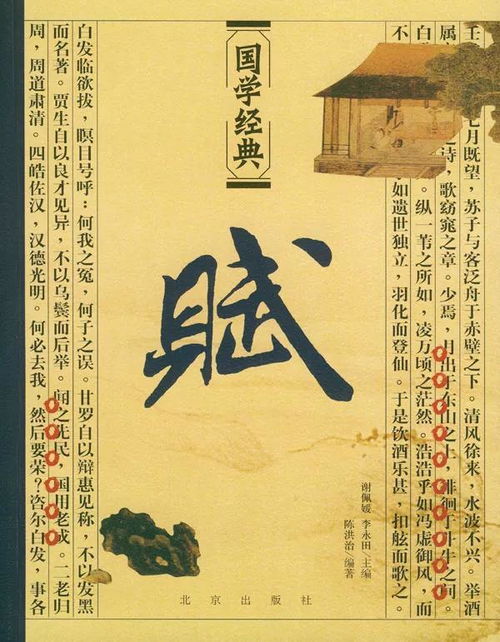 壬 七月既望，苏子与客泛舟于赤壁之下。清风徐来，水波不兴。举酒
属 之诗，歌窈窕之章。少焉，月出于东山之上，徘徊于斗牛之间。
白 。纵一苇之所如，凌万顷之茫然。浩浩乎如冯虚御风，而
不 如遗世独立，羽化而登仙。于是饮酒乐甚，扣舷而歌之。
国学经典
赋
谢佩媛 李永田/主编
陈洪治/编著
北京出版社
白发临欲拔，瞑目号呼：何我之冤，何子之误。甘罗自以辩惠见称，不以发黑
而名著。贾生自以良才见异，不以乌鬓而后举。闻之先民，国用老成。二老归
周，周道肃清。四皓佐汉，汉德光明。何必去我，然后要荣？咨尔白发，事各